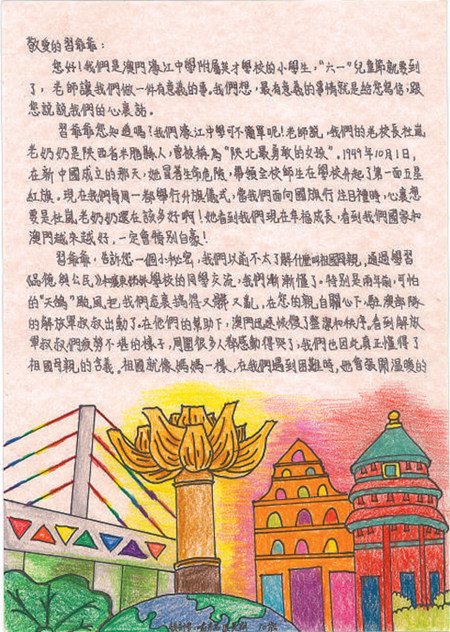 敬愛的習爺爺：
您好！我們是澳門濠江中學附屬英才學校的小學生，“六一”兒童節就要到
了，老師讓我們做一件有意義的事。我們想，最有意義的事情就是給您寫信，跟
您說說我們的心裏話。
習爺爺您知道嗎？我們濠江中學可不簡單呢！老師說，我們的老校長杜嵐
老奶奶是陝西省米脂縣人，曾被稱為“陝北最勇敢的女孩”。1949年10月1日，
在新中國成立的那天，她冒着生命危險，帶領全校師生在學校升起了第一面五星
紅旗。現在我們每周一都舉行升旗儀式，當我們面向國旗行注目禮時，心裏想
要是杜嵐老奶奶還在該多好啊！她看到我們現在幸福成長，看到我們國家和
澳門越來越好，一定會特別自豪！
習爺爺，告訴您一個小秘密，我們以前不太了解什麼叫祖國母親，通過學習
《品德與公民》、學校的同學交流，我們漸漸懂了。特別是兩年前，可怕
的“天鴿”颱風把我們家裏搞得又髒又亂，在您的親自關心下，駐澳部隊
的解放軍叔叔出動了。在他們的幫助下，澳門迅速恢復了整潔和秩序。看到解放
軍叔叔們疲勞不堪的樣子，周圍很多人都感動得哭了；我們也因此真正懂得了
祖國母親的含義。祖國就像媽媽一樣，在我們遇到困難時，她會張開溫暖的